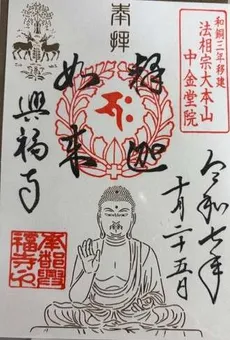 奉拝
和銅三年移建
法相宗大本山
中金堂院
釋迦
如来
興福寺
令和七年
十月二十五日